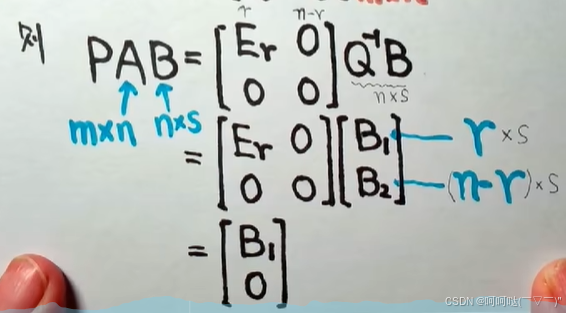 r n-r
则 PAB = [Er 0 0 0] Q⁻¹B
m×n n×s n×s
= [Er 0 0 0] [B₁ B₂] r×s (n-r)×s
= [B₁ 0]
CSDN @呵呵哒(￣▽￣)"